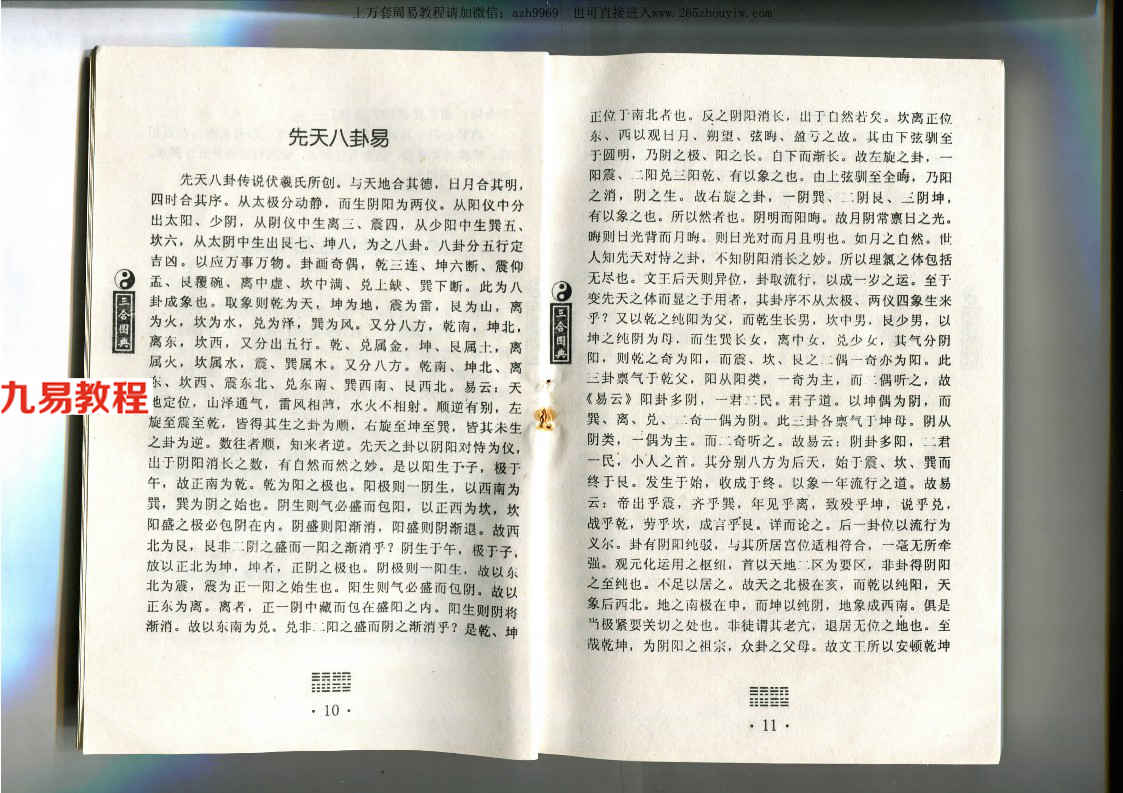 上万套周易教程请加微信：azh9969 也可直接进入www.265zhouyiw.com
先天八卦易
先天八卦传说伏羲氏所创。与天地合其德，日月合其明，
四时合其序。从太极分动静，而生阴阳为两仪。从阳仪中分
出太阳、少阴，从阴仪中生离三、震四，从少阳中生巽五、
坎六，从太阴中生出艮七、坤八，为之八卦。八卦分五行定
吉凶。以应万事万物。卦画奇偶，乾三连、坤六断、震仰
盂、艮覆碗、离中虚、坎中满、兑上缺、巽下断。此为八
卦成象也。取象则乾为天，坤为地，震为雷，艮为山，离
为火，坎为水，兑为泽，巽为风。又分八方，乾南，坤北，
离东，坎西，又分出五行。乾、兑属金，坤、艮属土，离
属火，坎属水，震、巽属木。又分八方。乾南、坤北、离
东、坎西、震东北、兑东南、巽西南、艮西北。易云：天
地定位，山泽通气，雷风相薄，水火不相射。顺逆有别，左
旋至震至乾，皆得其生之卦为顺，右旋至坤至巽，皆其未生
之卦为逆。数往者顺，知来者逆。先天之卦以阴阳对恃为仪，
出于阴阳消长之数，有自然而然之妙。是以阳生于子，极于
午，故正南为乾。乾为阳之极也。阳极则一阴生，以西南为
巽，巽为阴之始也。阴生则气必盛而包阳，以正西为坎，坎
阳盛之极必包阴在内。阴盛则阳渐消，阳盛则阴渐退。故西
北为艮，艮非二阴之盛而一阳之渐消乎？阴生于午，极于子，
放以正北为坤，坤者，正阴之极也。阴极则一阳生，故以东
北为震，震为正一阳之始生也。阳生则气必盛而包阴。故以
正东为离。离者，正一阴中藏而包在盛阳之内。阳生则阴将
渐消。故以东南为兑。兑非二阳之盛而阴之渐消乎？是乾、坤
三合图典
九易教程
· 10 ·
正位于南北者也。反之阴阳消长，出于自然若矣。坎离正位
东、西以观日月、朔望、弦晦、盈亏之故。其由下弦驯至
于圆明，乃阴之极、阳之长。自下而渐长。故左旋之卦，一
阳震、二阳兑三阳乾、有以象之也。由上弦驯至全晦，乃阳
之消，阴之生。故右旋之卦，一阴巽、二阴艮、三阴坤，
有以象之也。所以然者也。阴明而阳晦。故月阴常禀日之光。
晦则日光背而月晦。则日光对而月且明也。如月之自然。世
人知先天对恃之卦，不知阴阳消长之妙。所以理氣之体包括
无尽也。文王后天则异位，卦取流行，以成一岁之运。至于
变先天之体而显之于用者，其卦序不从太极、两仪四象生来
乎？又以乾之纯阳为父，而乾生长男，坎中男，艮少男，以
坤之纯阴为母，而生巽长女，离中女，兑少女，其气分阴
阳，则乾之奇为阳，而震、坎、艮之二偶一奇亦为阳。此
三卦禀气于乾父，阳从阳类，一奇为主，而二偶听之，故
《易云》阳卦多阴，一君二民。君子道。以坤偶为阴，而
巽、离、兑、二奇一偶为阴。此三卦各禀气于坤母。阴从
阴类，一偶为主。而二奇听之。故易云：阴卦多阳，二君
一民，小人之首。其分别八方为后天，始于震、坎、巽而
终于艮。发生于始，收成于终。以象一年流行之道。故易
云：帝出乎震，齐乎巽，年见乎离，致殁乎坤，说乎兑，
战乎乾，劳乎坎，成言乎艮。详而论之。后一卦位以流行为
义尔。卦有阴阳纯驳，与其所居宫位适相符合，一毫无所牵
强。观元化运用之枢纽，首以天地二区为要区，非卦得阴阳
之至纯也。不足以居之。故天之北极在亥，而乾以纯阳，天
象后西北。地之南极在申，而坤以纯阴，地象成西南。俱是
当极紧要关切之处也。非徒谓其老亢，退居无位之地也。至
哉乾坤，为阴阳之祖宗，众卦之父母。故文王所以安顿乾坤
三合图典
· 11 ·